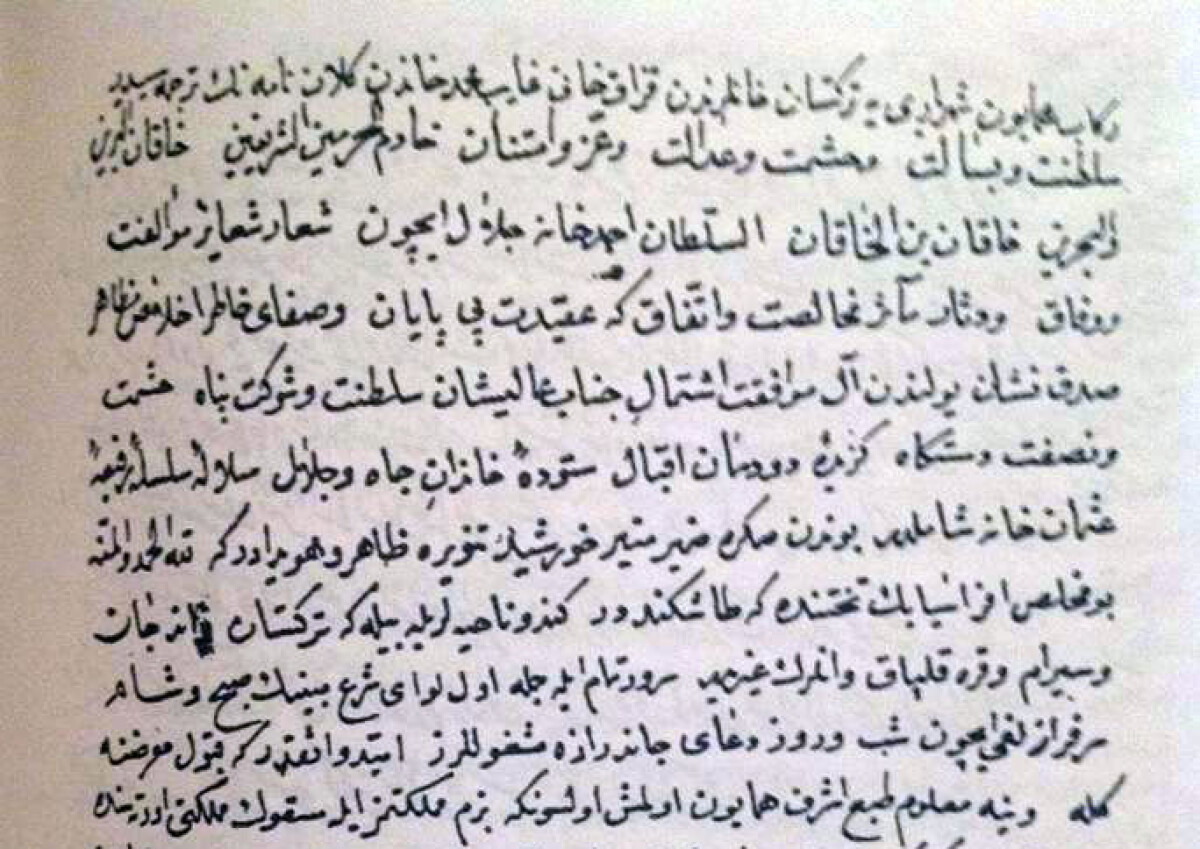 ركاب همايون شهرياری يه تركستان خانلرندن قزاق خانی غايب محمد خاندن كلان نامه نك ترجمه سيدر
سلطنت وبسالت وحشمت وعدالت وعز وامتنان خادم الحرمين الشريفين خاقان البرين
والبحرين خاقان بن الخاقان السلطان احمد خانه جلاول ايچون شعار شعاير مؤالفت
ووفاق ودثار مآثر مخالصت واتفاق كه عقيدت بی پايان وصفای خاطر اخلاص مظاهر
صدق نشان يولندن آل موافقت اشتمال جناب عاليشان سلطنت وشوكت پناه حشمت
ونصفت دستكاه كزيدهٔ دودمان اقبال ستودهٔ خاندان جاه وجلال سلالهٔ سلسلهٔ رفيعهٔ
عثمان خانه شاملدر بوندن صكره ضمير منير خورشيد تنويره ظاهر وهويدا در كه لله الحمد والمنه
بو مخلص افراسيابك تختنده كه طاشكنددر كندو ناحيه لريله بيله كه تركستان واندجان
وسيرام وقره قلپاق وانلرك غيريدر سرور تام ايله جمله اول لوای شرع مبينك صبح وشام
سرفرازلغی ايچون شب وروز دعای جاندرازه مشغوللرز اميد واثقدر كه قبول معرضنه
كله وينه معلوم طبع اشرف همايون اولمش اولسونكه بزم مملكتمز ايله مسقوك مملكتی اورته سنده